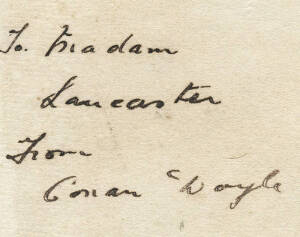 To. Madam
Lancaster
From
Conan Doyle